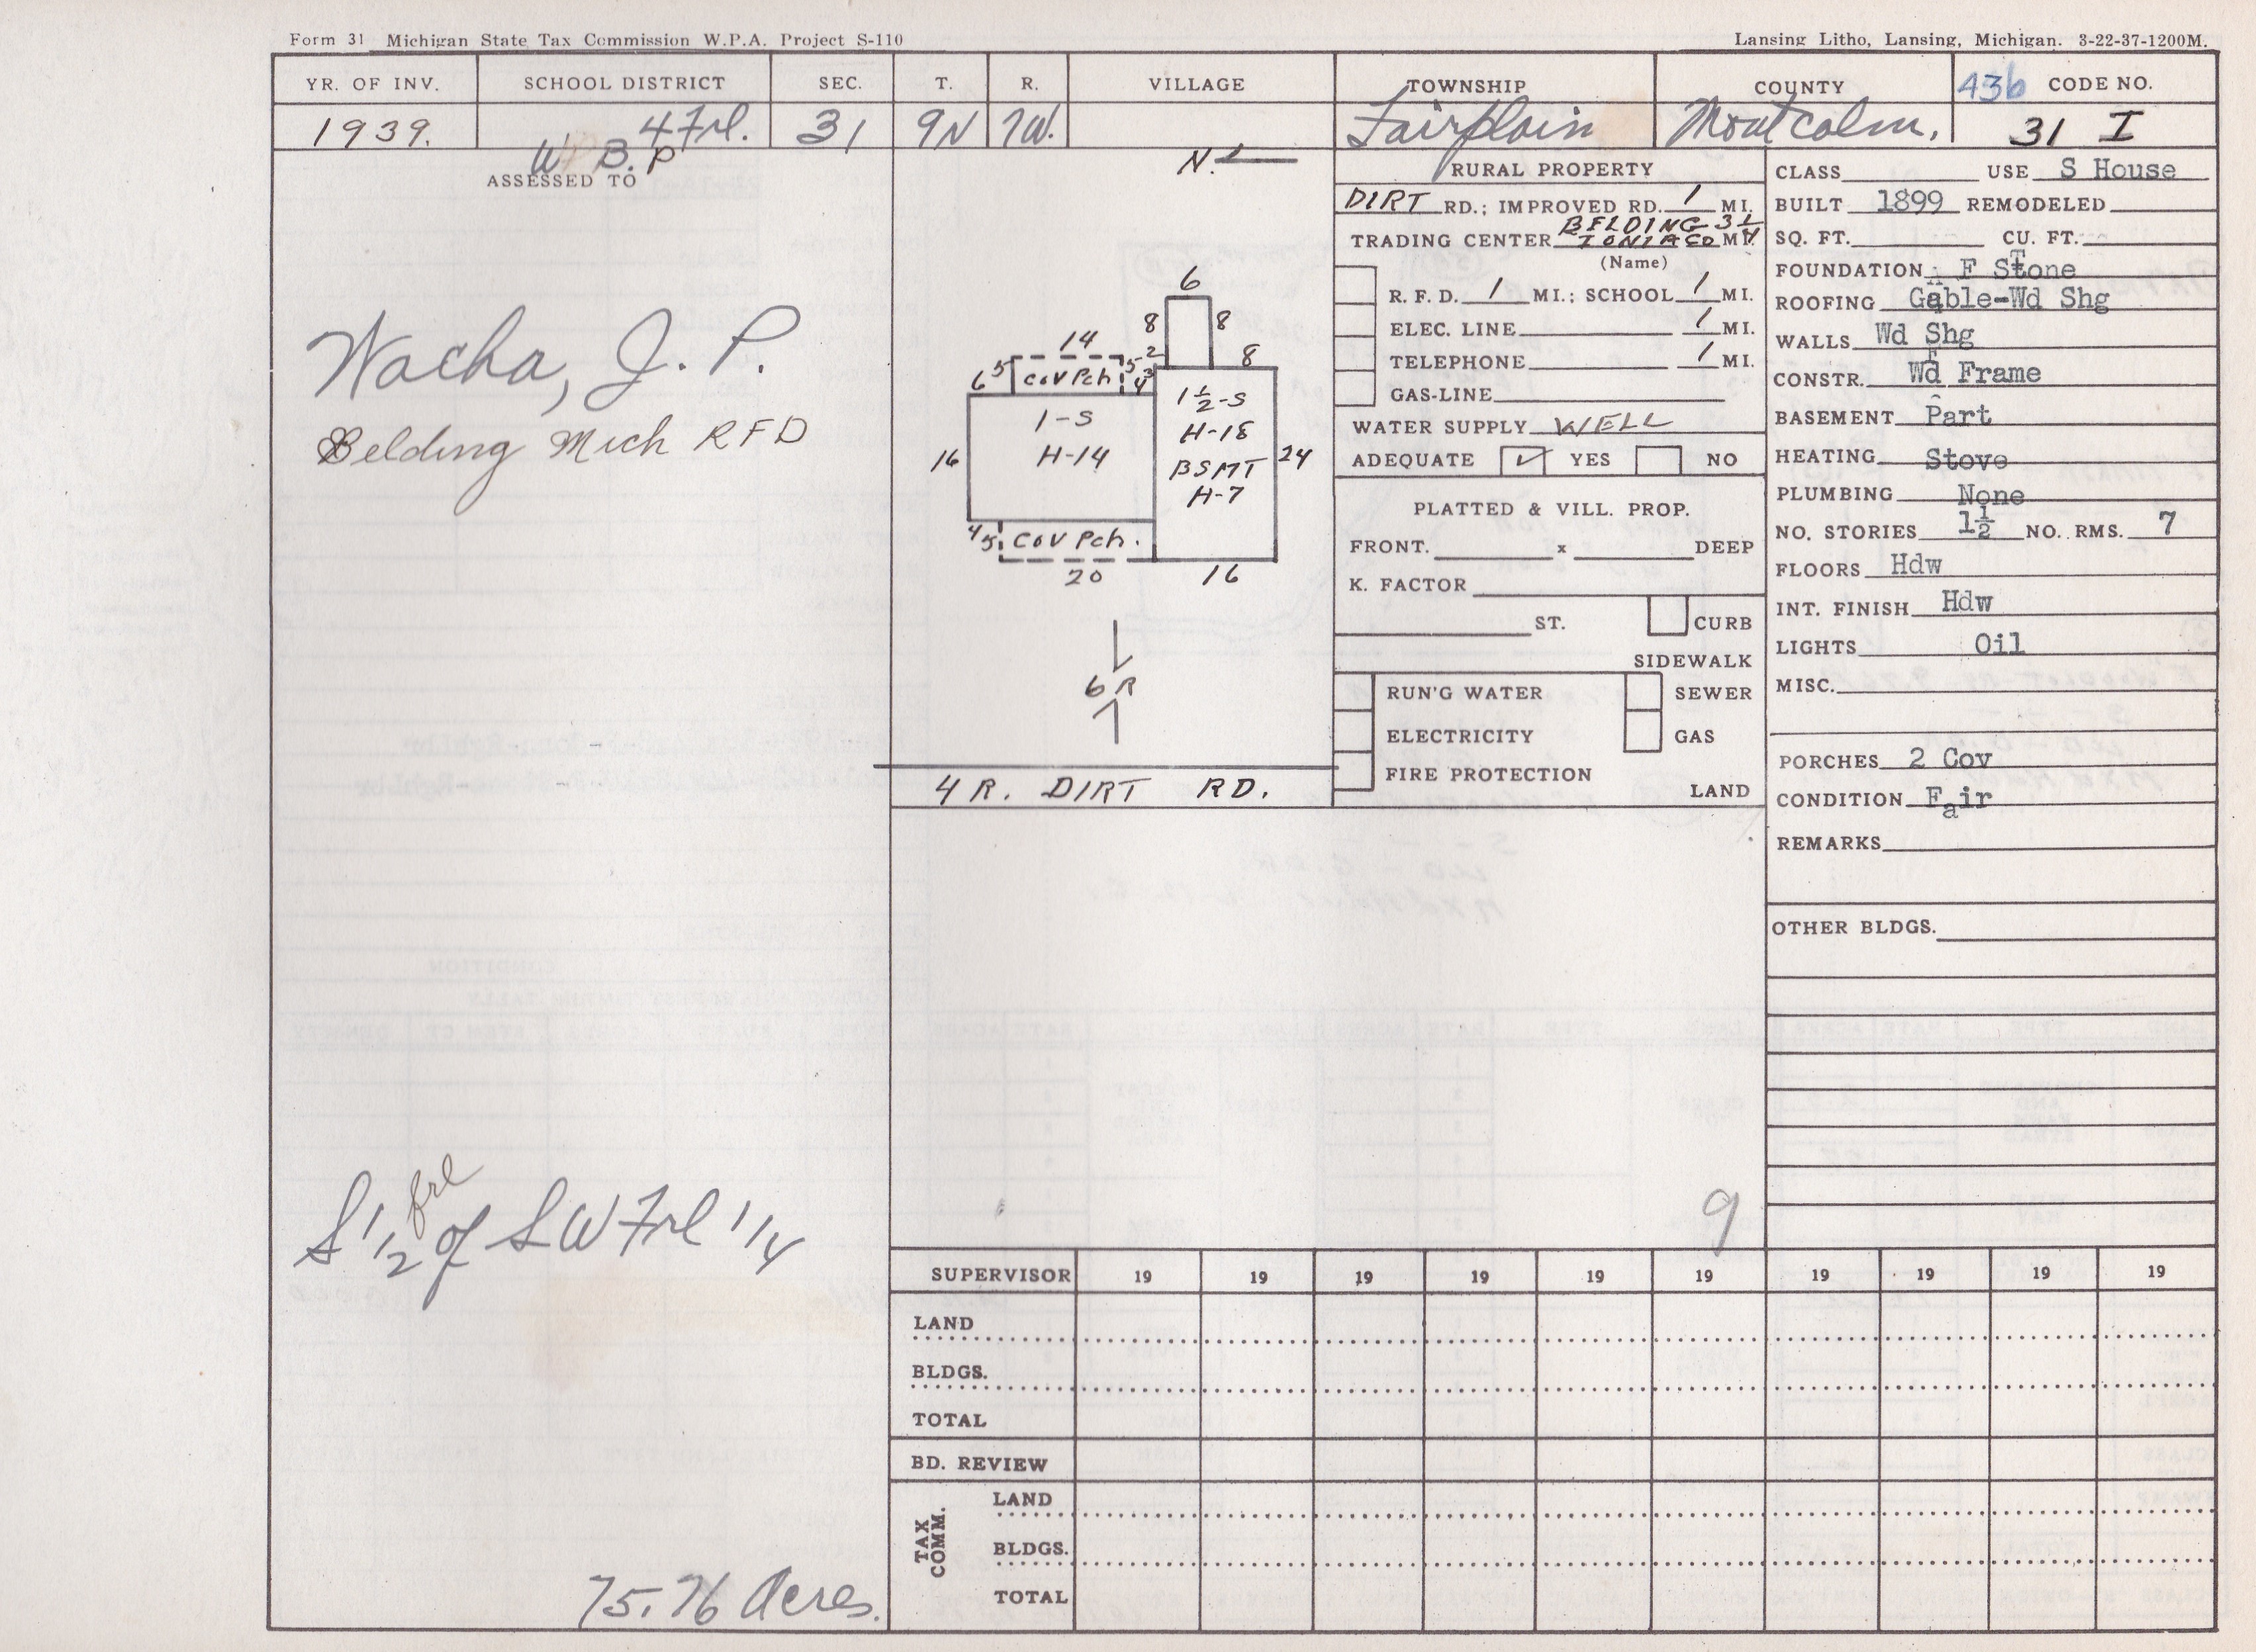 Form 31 Michigan State Tax Commission W.P.A. Project S-110
Lansing Litho, Lansing, Michigan. 3-22-37-1200M.
YR. OF INV. SCHOOL DISTRICT SEC. T. R. VILLAGE TOWNSHIP COUNTY 436 CODE NO.
1939. 4 Frl. 31 9N 7W. Fairplain Montcalm. 31 I
W B. P
ASSESSED TO
Wacha, J. P.
Belding Mich RFD
S 1/2 frl of SW Frl 1/4
75.76 Acres.
N.
6
8 8
14 5 2 8
6 5 Cov Pch 4 3
1-S
H-14
16
1 1/2-S
H-18
BSMT
H-7
24
4 5 Cov Pch.
20 16
6 R
4 R. DIRT RD.
RURAL PROPERTY
DIRT RD.; IMPROVED RD. 1 MI.
BELDING 3 1/4
TRADING CENTER IONIA CO MI.
(Name)
R. F. D. 1 MI.; SCHOOL 1 MI.
ELEC. LINE 1 MI.
TELEPHONE 1 MI.
GAS-LINE
WATER SUPPLY WELL
ADEQUATE ✓ YES NO
PLATTED & VILL. PROP.
FRONT. x DEEP
K. FACTOR
ST. CURB
SIDEWALK
RUN'G WATER SEWER
ELECTRICITY GAS
FIRE PROTECTION
LAND
CLASS USE S House
BUILT 1899 REMODELED
SQ. FT. CU. FT.
FOUNDATION F Stone
ROOFING Gable-Wd Shg
WALLS Wd Shg
CONSTR. Wd Frame
BASEMENT Part
HEATING Stove
PLUMBING None
NO. STORIES 1½ NO. RMS. 7
FLOORS Hdw
INT. FINISH Hdw
LIGHTS Oil
MISC.
PORCHES 2 Cov
CONDITION Fair
REMARKS
OTHER BLDGS.
9
SUPERVISOR 19 19 19 19 19 19 19 19 19 19
LAND
BLDGS.
TOTAL
BD. REVIEW
TAX COMM.
LAND
BLDGS.
TOTAL